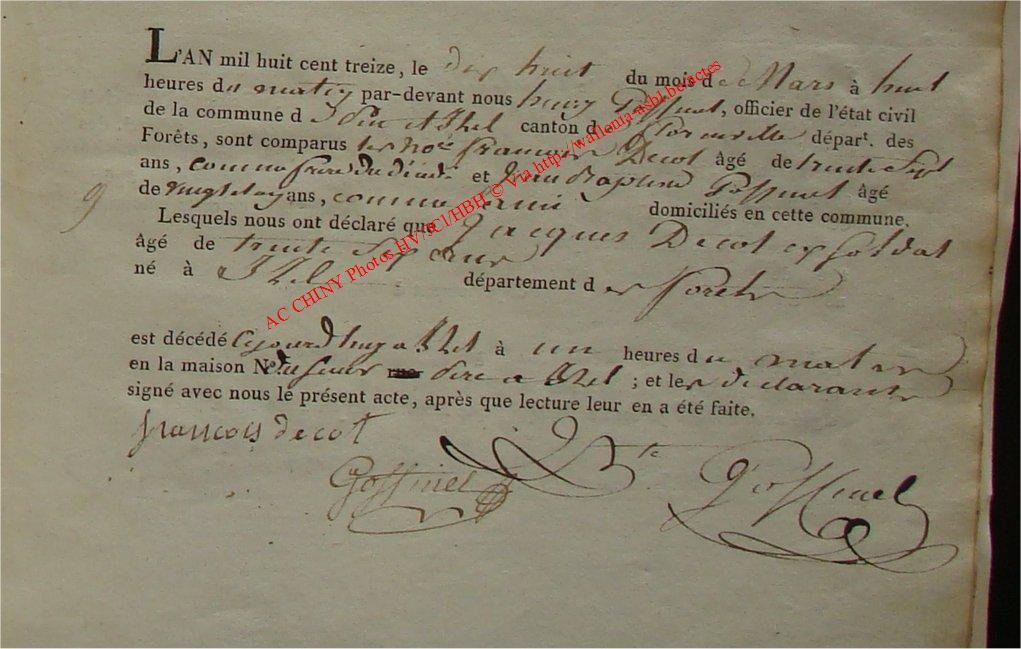 L'AN mil huit cent treize, le dix huit du mois de Mars à huit
heures du matin par-devant nous henry Goffinet, officier de l'état civil
de la commune d' Izel canton de florenville départ. des
Forêts, sont comparus les només françois Decot âgé de trente sept
ans, comme frere du décédé et Jean Baptiste Goffinet âgé
9
de vingt ans, comme ami domiciliés en cette commune.
Lesquels nous ont déclaré que Jacques Decot ex soldat
âgé de trente ans
né à Izel département des forets
est décédé aujourd'huy a Izel à un heures du matin
en la maison N° du sieur rue dite a Izel ; et les declarants
signé avec nous le présent acte, après que lecture leur en a été faite.
françois decot
Goffinet
Bte Goffinet
AC CHINY Photos HV/JCl/HBH © Via http://wallonia-asbl.be/actes